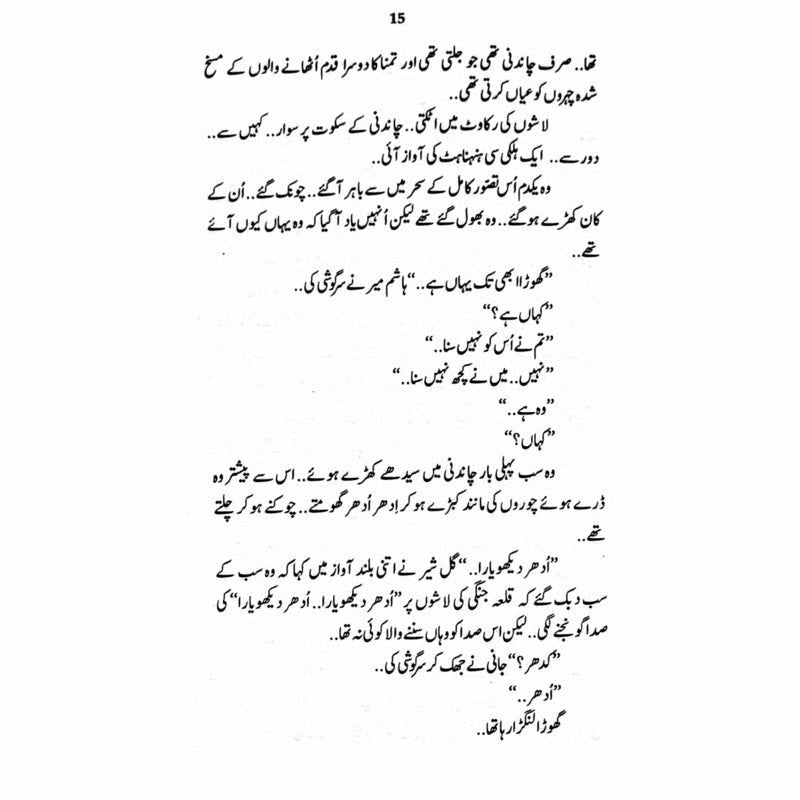 15
تھا.. صرف چاندنی تھی جو جلتی تھی اور تمنا کا دوسرا قدم اُٹھانے والوں کے مسخ
شدہ چہروں کو عیاں کرتی تھی..
لاشوں کی رکاوٹ میں اٹکتی.. چاندنی کے سکوت پر سوار.. کہیں سے..
دور سے.. ایک ہلکی سی ہنہناہٹ کی آواز آئی..
وہ یکدم اُس تصّور کامل کے سحر میں سے باہر آ گئے.. چونک گئے.. اُن کے
کان کھڑے ہو گئے.. وہ بھول گئے تھے لیکن اُنہیں یاد آ گیا کہ وہ یہاں کیوں آئے
تھے..
”گھوڑا ابھی تک یہاں ہے..“ ہاشم میر نے سرگوشی کی..
”کہاں ہے؟“
”تم نے اُس کو نہیں سنا..“
”نہیں.. میں نے کچھ نہیں سنا..“
”وہ ہے..“
”کہاں؟“
وہ سب پہلی بار چاندنی میں سیدھے کھڑے ہوئے.. اس سے پیشتر وہ
ڈرے ہوئے چوروں کی مانند کبڑے ہو کر اِدھر اُدھر گھومتے.. چوکنے ہو کر چلتے
تھے..
”اُدھر دیکھو یارا..“ گل شیر نے اتنی بلند آواز میں کہا کہ وہ سب کے
سب دبک گئے کہ قلعہ جنگی کی لاشوں پر ”اُدھر دیکھو یارا.. اُدھر دیکھو یارا“ کی
صدا گونجنے لگی.. لیکن اس صدا کو وہاں سننے والا کوئی نہ تھا..
”کدھر؟“ جانی نے جھک کر سرگوشی کی..
”اُدھر..“
گھوڑا لنگڑا رہا تھا..